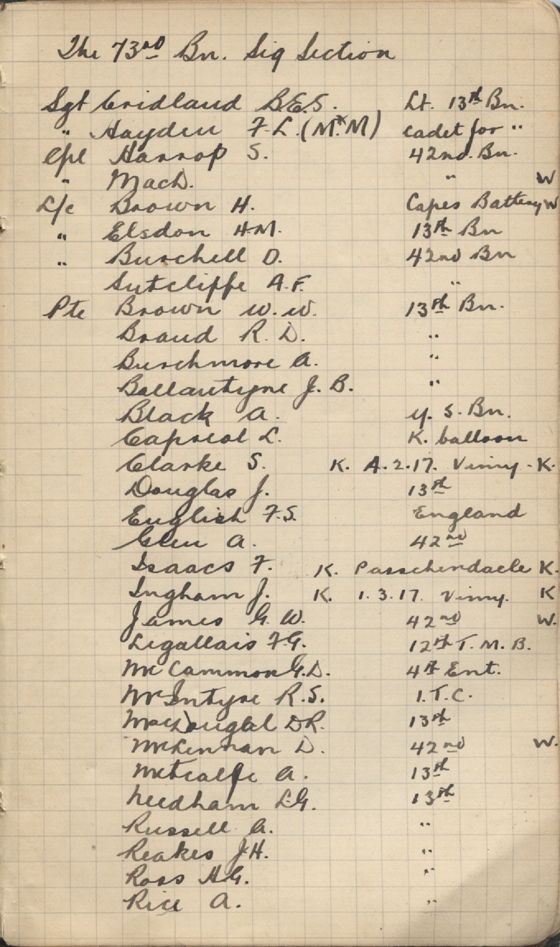 The 73rd Bn. Sig Section
Sgt Cridland B.E.S. Lt. 13th Bn.
" Hayden F.L. (M.M) cadet for "
Cpl Harrop S. 42nd. Bn.
" Mack. " W
L/c Brown H. Capes Battery W
" Elsdon H.M. 13th Bn
" Burchell D. 42nd Bn
Sutcliffe A.F. "
Pte Brown W.W. 13th Bn.
Braud R.D. "
Burchmore A. "
Ballantyne J.B. "
Black A. Y.S. Bn.
Capreol L. K. balloon
Clarke S. K. A.2.17. Vimy - K.
Douglas J. 13th
English F.S. England
Glen A. 42nd
Isaacs F. K. Passchendaele K.
Ingham J. K. 1.3.17. Vimy. K
James G.W. 42nd W.
Legallais F.G. 12th T.M.B.
McCammon G.D. 4th Ent.
McIntyre R.S. 1.T.C.
MacDougal D.R. 13th
McKinnan D. 42nd W.
Metcalfe A. 13th
Needham L.G. 13th
Russell A. "
Reakes J.H. "
Ross H.G. "
Rice A. "